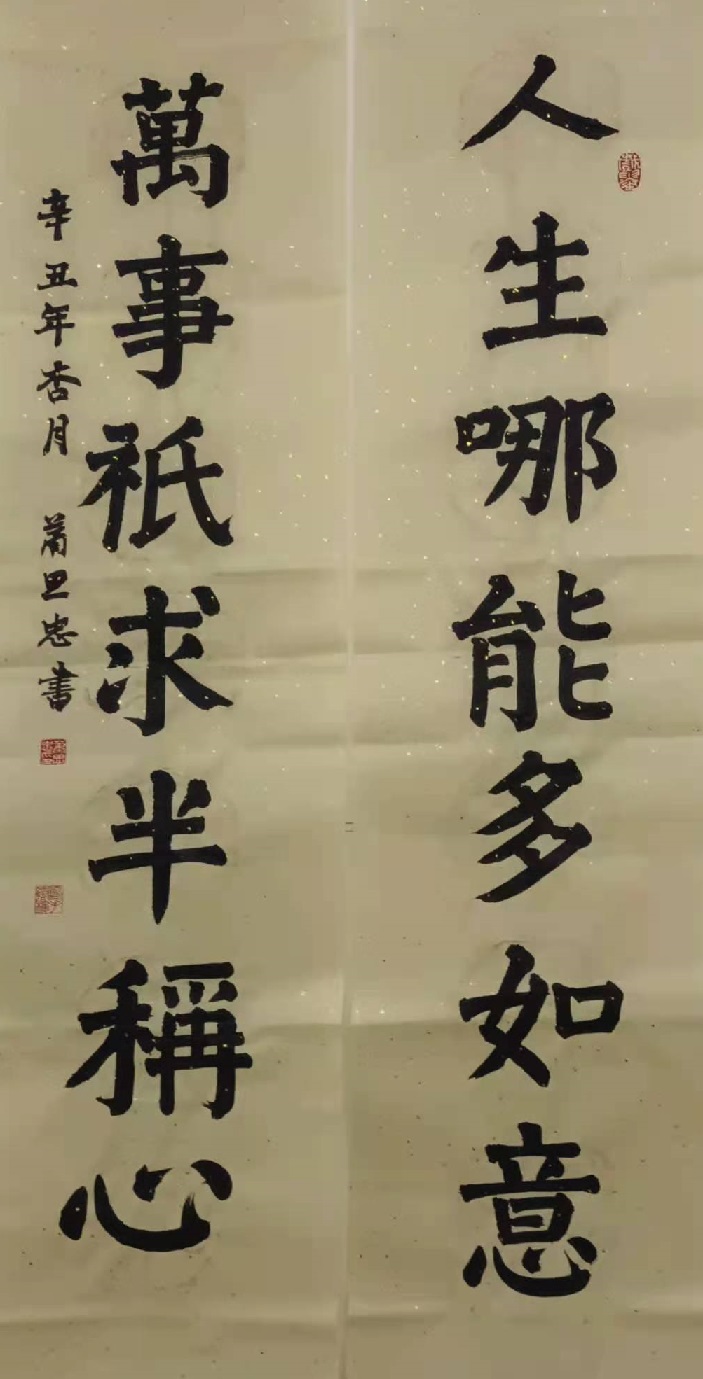 人生哪能多如意
萬事祇求半稱心
辛丑年杏月 蕭思忠書